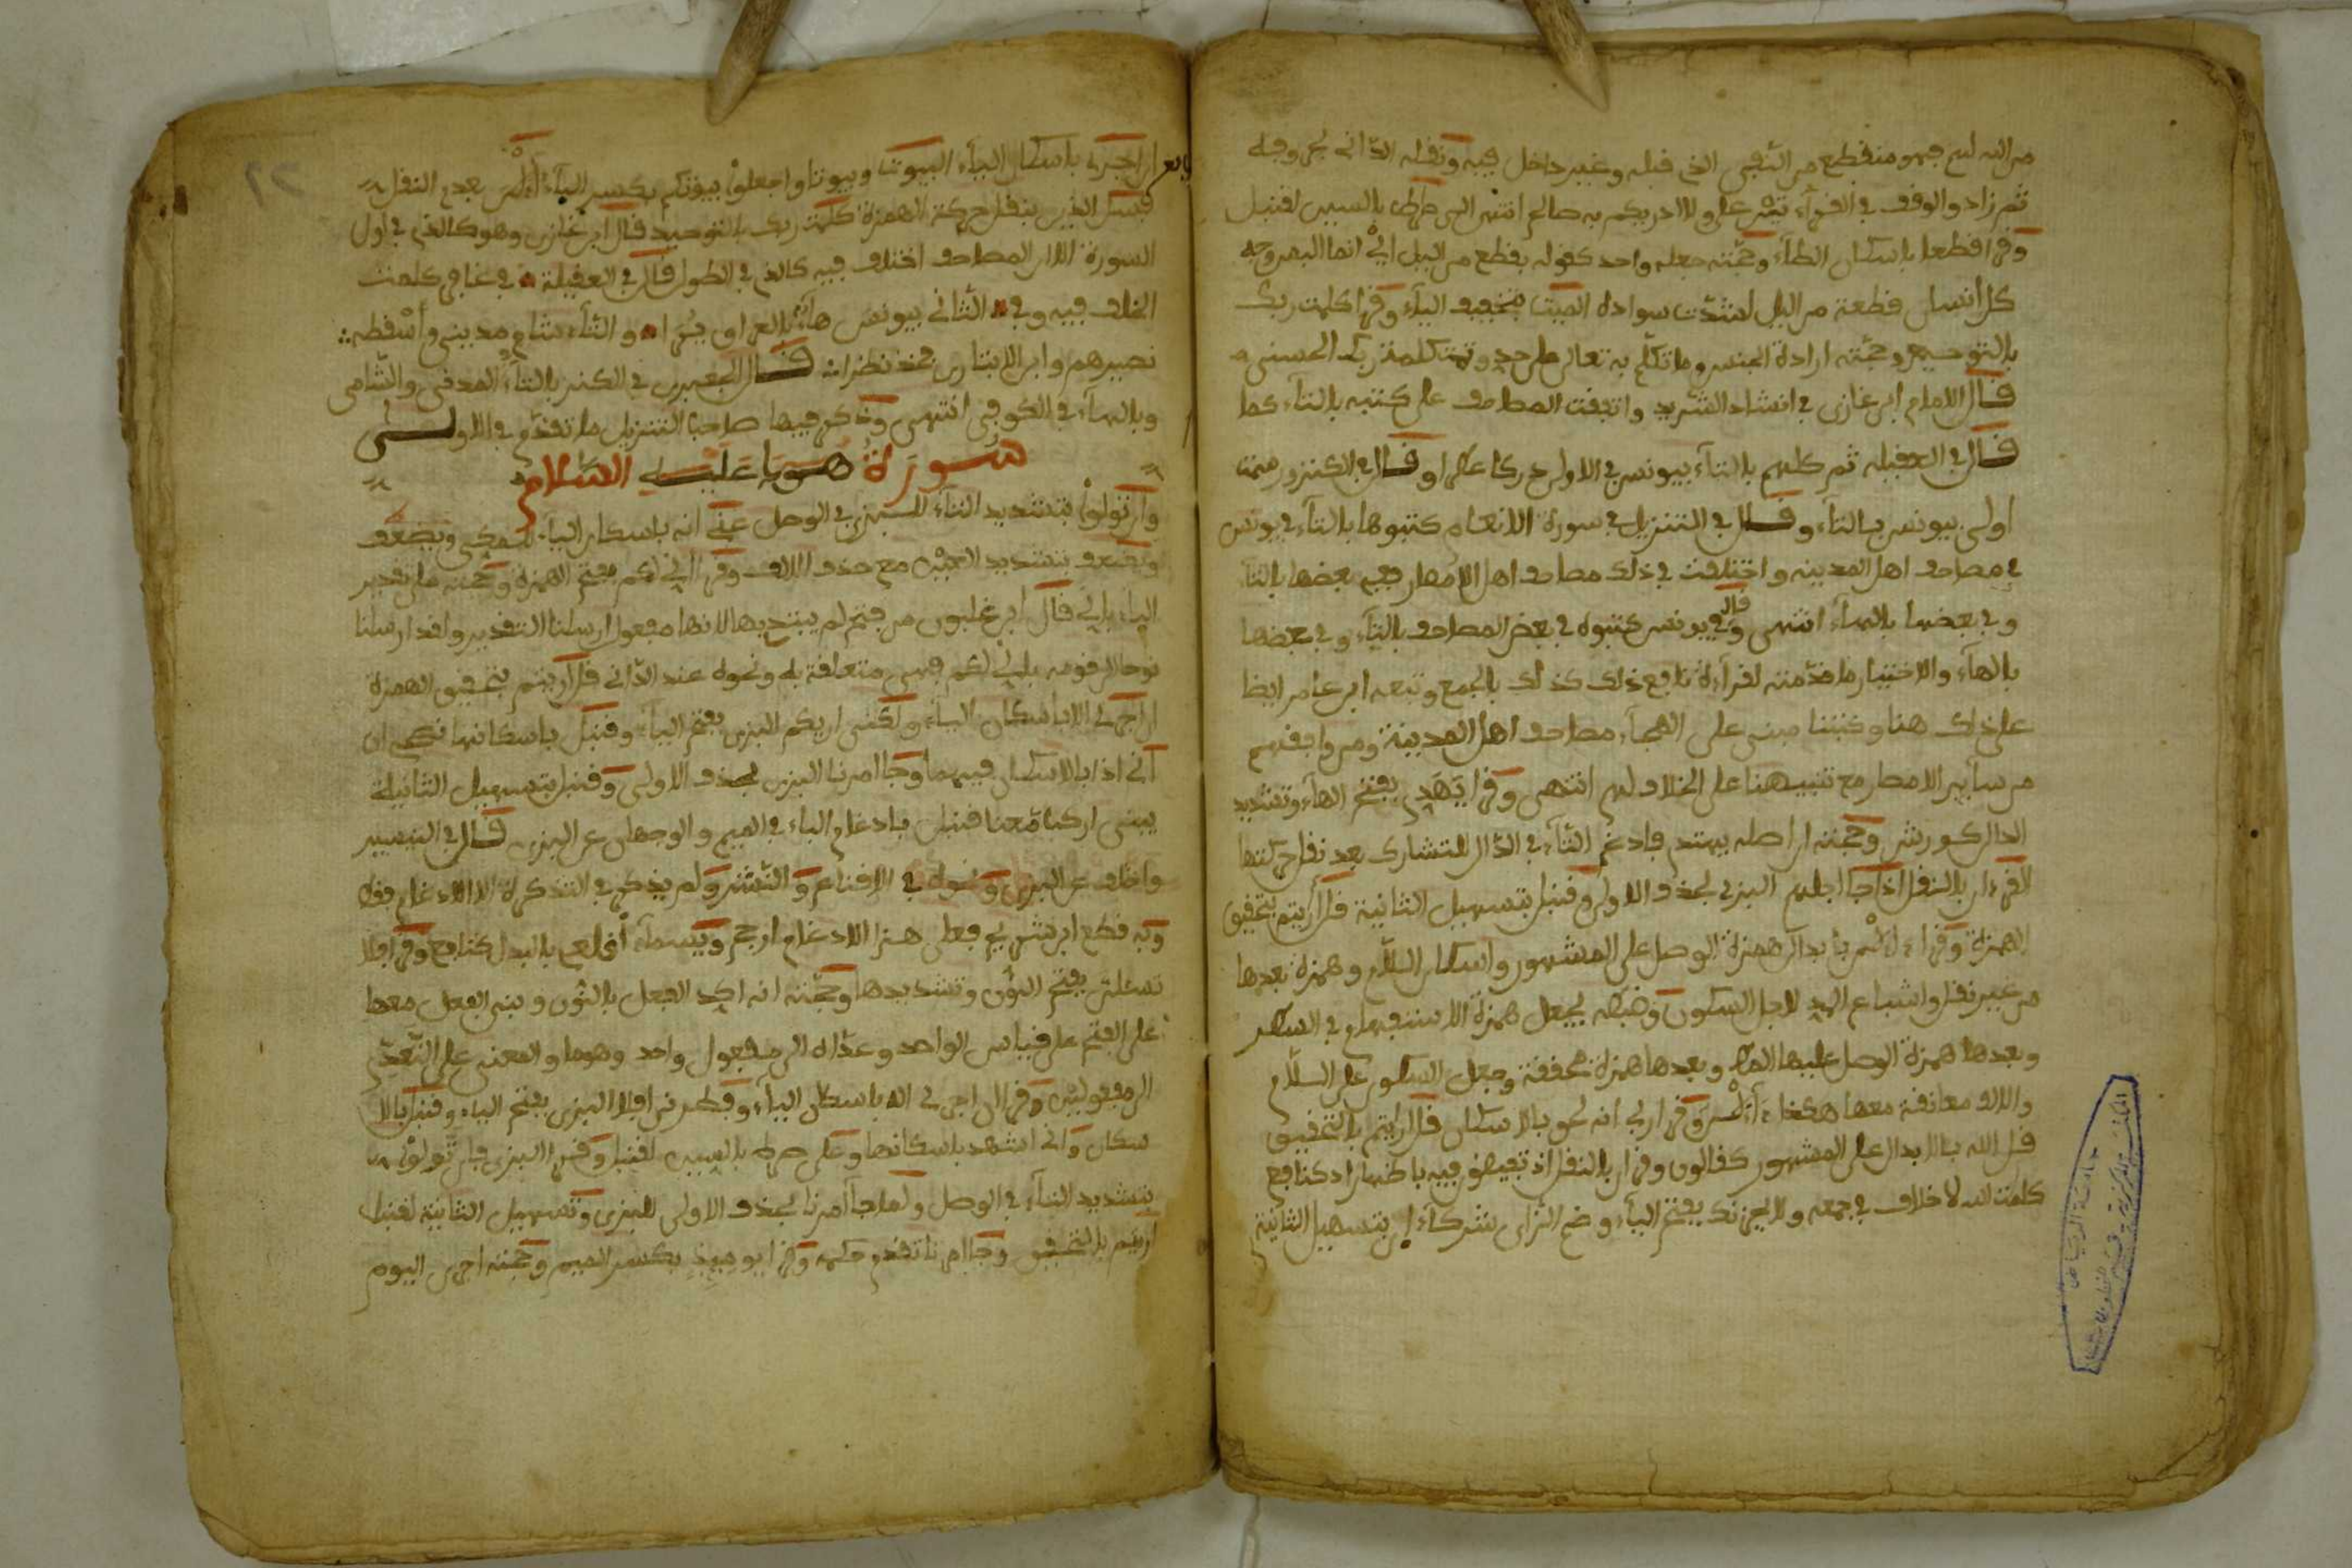 من الله لهم فهو منقطع من النفي الذي قبله وغير داخل فيه ونقله الداني بحروفه
ثم زاد والوقف في القرآن تم على ولا ادريكم به صالح انتهى الى صراط بالسين لقنبل
وقرا قطعا باسكان الطاء وحجته جعله واحد كقوله بقطع من اليل اي انما البعض وجه
كل انسان قطعة من اليل لشدت سواده الميت بتخفيف الياء وقرا كلمت ربك
بالتوحيد وحجته ارادة الجنس وما تكلم به تعالى على حد وتمت كلمة ربك الحسنى
قال الامام ابن غازي في انشاد الشريد واتفقت المصاحف على كتبه بالتاء كما
قال في العقيله ثم كلهم بالتاء بيونس في الاولى وقال في الكنز ورسمت
اولى بيونس بالتاء وقال في التنزيل في سورة الانعام كتبوها بالتاء في يونس
في مصاحف اهل المدينه واختلفت في ذلك مصاحف اهل الامصار ففي بعضها بالتاء
وفي بعضها بالهاء انتهى وقال في يونس كتبوه في بعض المصاحف بالتاء وفي بعضها
بالهاء والاختيار ما قدمته لقرآءة نافع ذلك كذلك بالجمع وتبعه ابن عامر ايضا
على ذلك هنا وكتبنا مبنى على الهجاء مصاحف اهل المدينة ومن وافقهم
من سآير الامصار مع تنبيهنا على الخلاف لهم انتهى وقرا يهدي بفتح الهاء وتشديد
الدال كورش وحجته ان اصله يهتدي فادغم التاء في الدال للتشارك بعد نقل حركتها
القرءان بالنقل اذا جا اجلهم البزي بحذف الاولى وقنبل بتسهيل الثانية قل ارايتم بتحقيق
الهمزة وقرا ءالن بابدال همزة الوصل على المشهور واسكان اللام وهمزة بعدها
من غير نقل واشباع المد لاجل السكون وضبطه بجعل همزة الاستفهام في السطر
وبعدها همزة الوصل عليها المط وبعدها همزة محققة وجعل السكون على اللام
والالف معانقة معها هكذا ءآلن وقرا ربي انه لحق بالاسكان قل ارايتم بالتحقيق
قل الله بالابدال على المشهور كقالون وقران بالنقل اذ تفيضون فيه باظهار اذ كنافع
كلمت الله لا خلاف في جمعه ولا يحزنك بفتح الياء وضم الزاي شركاء ان بتسهيل الثانية
ان اجري باسكان الياء البيوت وبيوتا واجعلوا بيوتكم بكسر الباء ءآلن بعدم النقل
فسئل الذين بنقل حركة الهمزة كلمت ربك بالتوحيد قال ابن غازي وهو كالذي في اول
السورة الا ان المصاحف اختلفت فيه كالذي في الطول قال في العقيلة وفي غافر كلمت
الخلف فيه وفي الثاني بيونس هاء بالعراق يرا والتاء شام مديني واسقطه
نصيرهم وابن الانباري فخذ نظرا قال الجعبري في الكنز بالتاء المدني والشامي
وبالهاء في الكوفي انتهى وذكر فيها صاحب التنزيل ما تقدم في الاولى
سورة هود عليه السلام
وان تولوا بتشديد التاء للبزي في الوصل عني انه باسكان الياء للمكي ويضعف
ويضعف بتشديد العين مع حذف الالف وقرا اني لكم بفتح الهمزة وحجته على تقدير
الباء باني قال ابن غلبون من فتح لم يبتدي بها لانها مفعول ارسلنا التقدير ولقد ارسلنا
نوحا الى قومه باني لكم فهي متعلقة به ونحوه عند الداني قل ارايتم بتحقيق الهمزة
ان اجري الا باسكان الياء ولكني اريكم البزي بفتح الياء وقنبل باسكانها نصحي ان
اني اذا بالاسكان فيهما وجا امرنا البزي بحذف الاولى وقنبل بتسهيل الثانية
يبني اركب معنا قنبل بادغام الباء في الميم والوجهان عن البزي قال في التيسير
واختلف عن البزي ونحوه في الاقناع والنشر ولم يذكر في التذكرة الا الادغام فقط
وبه قطع ابن شريح فعلى هذا الادغام ارجح ويسمآء اقلعي بالبدل كنافع وقرا فلا
تسئلن بفتح النون وتشديدها وحجته انه اكد الفعل بالنون وبنى الفعل معها
على الفتح على قياس الواحد وعداه الى مفعول واحد وهوها والمعنى على التعدي
الى مفعولين وقرا ان اجري الا باسكان الياء وفطرني افلا البزي بفتح الياء وقنبل بالا
سكان واني اشهد باسكانها وعلى صراط بالسين لقنبل وقرا البزي فان تولوا
بتشديد التاء في الوصل ولما جآ امرنا بحذف الاولى للبزي وتسهيل الثانية لقنبل
ارايتم بالتحقيق وجا امرنا تقدم حكمه وقرا يوميذ بكسر الميم وحجته اجرى اليوم